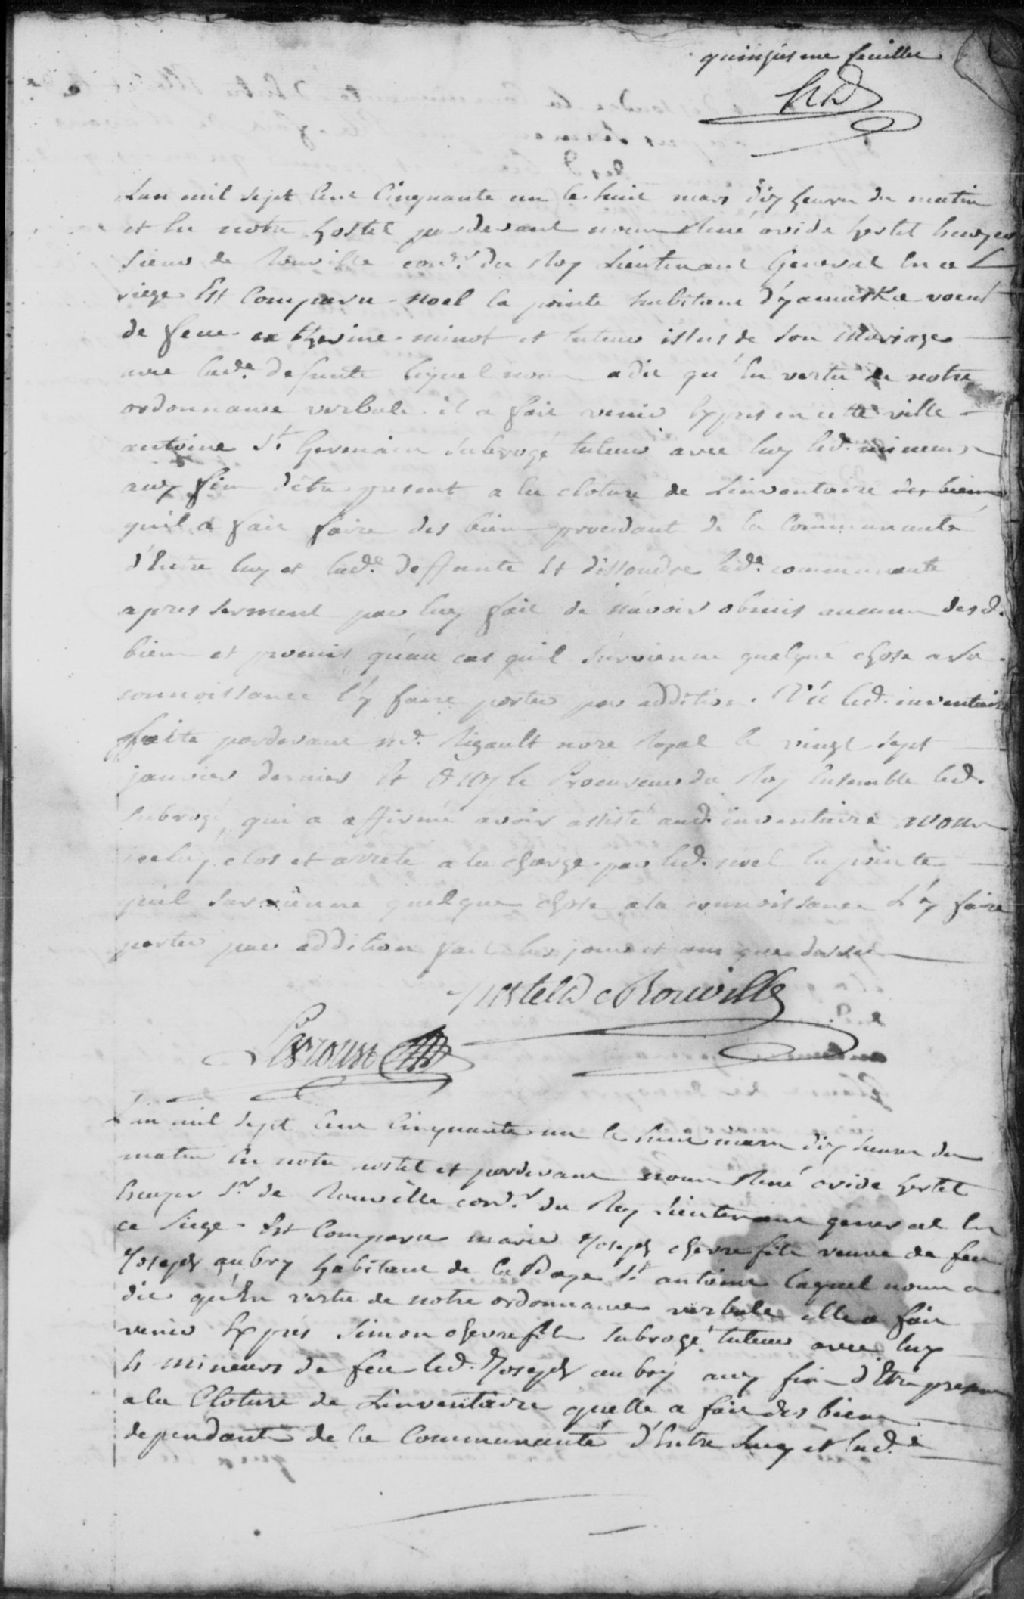 quinziesme feuillet
hR
Lan mil sept Cent Cinquante un le huit mars dix heures du matin
et En notre hostel pardevant nous René ovide hertel Ecuyer
Sieur de Rouville con.er du Roy Lieutenant General En ce
siege Est Comparu noel la pointe habitant d'yamaska
de feue minot et tuteur issus de Son Mariage
avec lad.e defunte lequel nous a dit qu'En vertu de notre
ordonnance verballe il a fait venir Expres en cette ville
antoine St Germain subrogé tuteur avec luy lesd. mineurs
aux fin d'etre present a la cloture de Linventaire des biens
quil a fait faire des bien procedant de la Communauté
d'Entre luy et lad.e deffunte Et dissoudre lad.e communauté
apres serment par luy fait de n'avoir obmis aucun desd.
bien et promis qu'au cas quil survienne quelque chose a sa
connoissance l'y faire porter par addition. Vû led. inventaire
faitte pardevant m.e Rigault no.re Royal le vingt sept
janvier dernier Et le Procureur du Roy Ensemble led.
subrogé qui a affirmé avoir assisté aud. inventaire avons
iceluy clos et arreté a la charge par led. noel la pointe
quil survienne quelque chose a la connoissance L'y faire
porter par addition fait les jour et an que dessus
hertel De Rouville
L'an mil sept Cent Cinquante un le huit mars dix heures du
matin En notre hostel et pardevant nous René ovide hertel
Ecuyer S.r de Rouville con.er du Roy Lieutenant general En
ce Siege Est Comparu marie Joseph chevrefils veuve de feu
Joseph aubry habitant de La Baye St antoine laquel nous a
dit qu'En vertu de notre ordonnance verbale elle a fait
venir Expres Simon chevrefils subrogé tuteur avec luy
4 mineurs de feu led. Joseph aubry aux fin d'Etre present
a la Cloture de Linventaire quelle a fait des bien
dependant de la Communauté d'Entre luy et lad.e